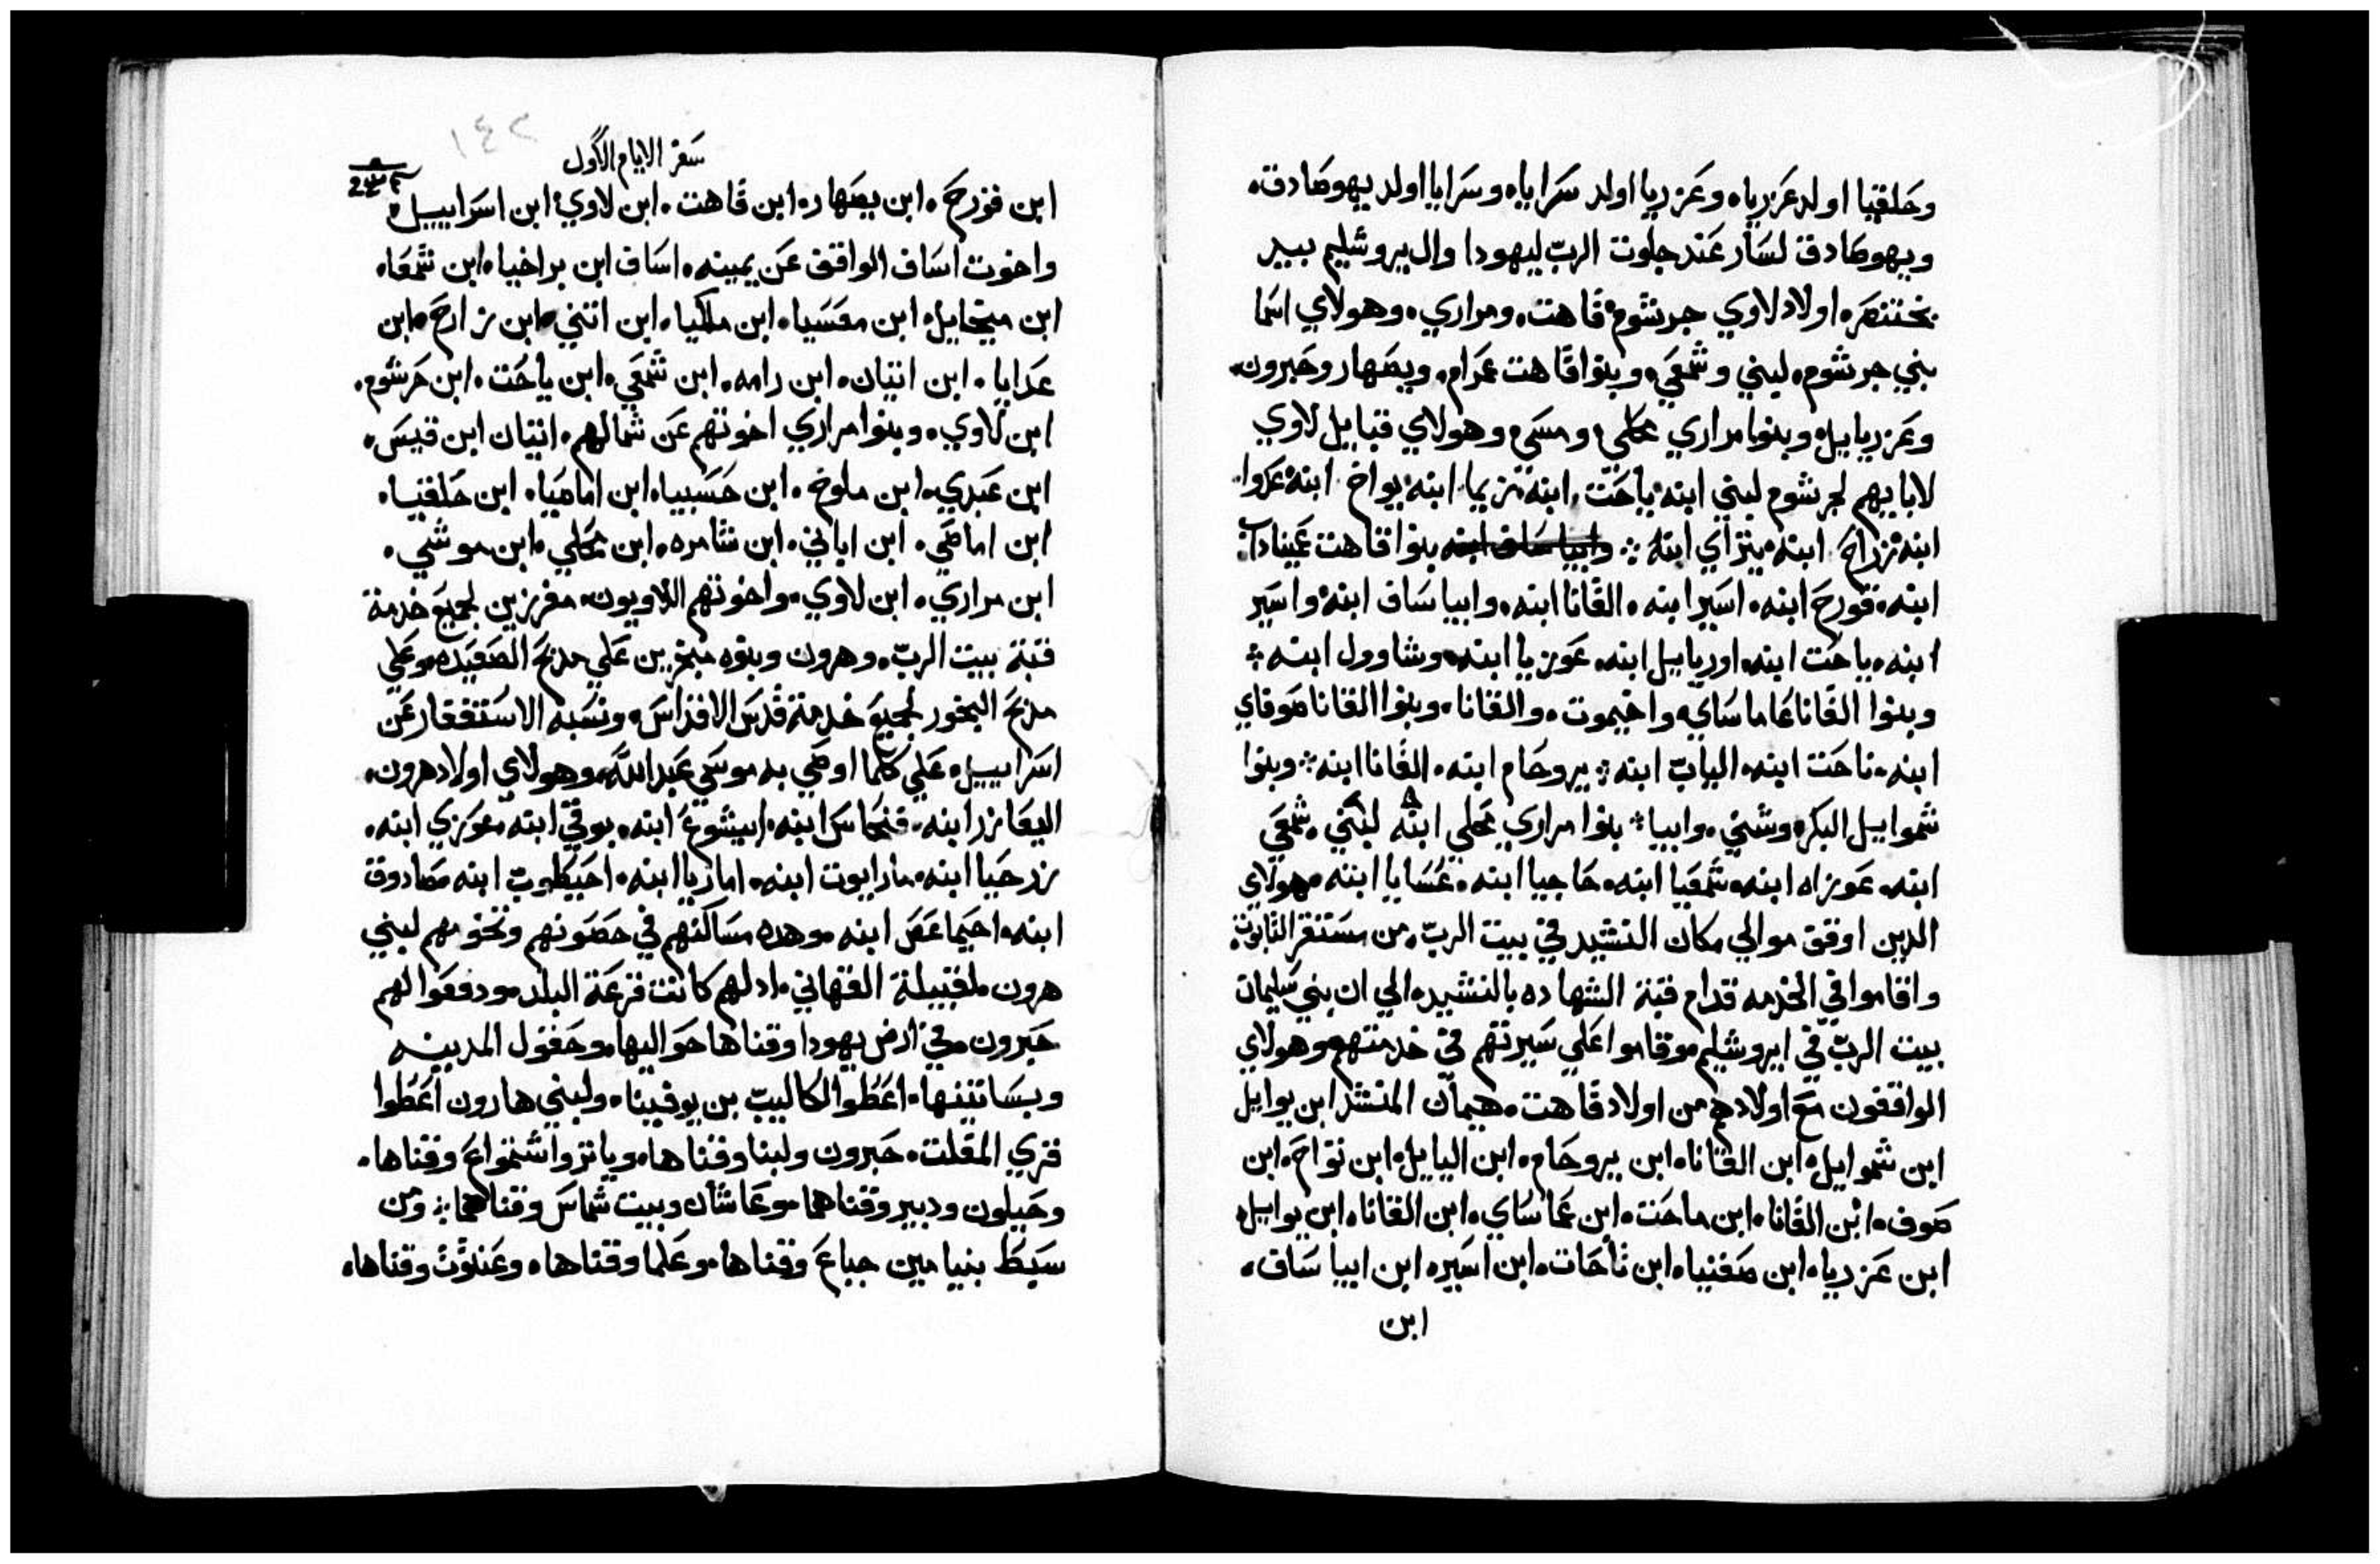 وحلقيا اولد عزريا، وعزريا اولد سرايا، وسرايا اولد يهوصادق،
ويهوصادق لسار عند جلوت الرب ليهودا وال يروشليم بيد
بختنصر، اولاد لاوي جرشوم، قاهت، ومراري، وهولاي اسما
بني جرشوم، لبني وشمعي، وبنوا قاهت عمرام، ويصهار وحبرون،
وعزرياييل، وبنوا مراري محلي، ومسي، وهولاي قبايل لاوي
لابايهم لجرشوم لبني ابنه، ياحت، ابنه، زيما، ابنه، يواخ، ابنه، عدوا،
ابنه، زراح، ابنه، يتراي ابنه ؛ وابيا ساف ابنه بنوا قاهت عميناداب
ابنه، قورح ابنه، اسير ابنه، القانا ابنه، وابيا ساف ابنه، واسير
ابنه، ياحت ابنه، اورياييل ابنه، عوزيا ابنه، وشاوول ابنه ؛
وبنوا القانا عاماساي، واخيموت، والقانا، وبنوا القانا صوفاي
ابنه، ناحت ابنه، الياب ابنه ؛ يروحام ابنه، القانا ابنه ؛ وبنوا
شمواييل البكر، وشني، وابيا ؛ بنوا مراري محلي ابنه لبني، شمعي
ابنه، عوزاه ابنه، شمعيا ابنه، حاجيا ابنه، عسايا ابنه، وهولاي
الدين اوقق موالي مكان النشيد في بيت الرب، من مستقر التابوت،
واقاموا في الخدمه قدام قبة الشهاده بالنشيد، الي ان بني سليمان
بيت الرب في ايروشليم، وقاموا علي سيرتهم في خدمتهم، وهولاي
الواققون مع اولادهم من اولاد قاهت، هيمان المنشد ابن يواييل
ابن شمواييل، ابن القانا، ابن يروحام، ابن الياييل، ابن تواح، ابن
صوف، ابن القانا، ابن ماحت، ابن عاماساي، ابن القانا، ابن يواييل،
ابن عزريا، ابن صفنيا، ابن تاحات، ابن اسير، ابن ابيا ساف،
ابن
١٤٢
سفر الايام الاول
ابن قورح، ابن يصهار، ابن قاهت، ابن لاوي، ابن اسراييل،
واخوت اساف الواقف عن يمينه، اساف ابن براخيا، ابن شمعا،
ابن ميخاييل، ابن معسيا، ابن ملكيا، ابن اتني، ابن زارح، ابن
عدايا، ابن اتيان، ابن رامه، ابن شمعي، ابن ياحت، ابن جرشوم،
ابن لاوي، وبنوا مراري اخوتهم عن شمالهم، اتيان ابن قيس،
ابن عبدي، ابن ملوخ، ابن حسبيا، ابن اماصيا، ابن حلقيا،
ابن اماصي، ابن اباني، ابن شامره، ابن محلي، ابن موشي،
ابن مراري، ابن لاوي، واخوتهم اللاويون، مفرزين لجميع خدمة
قبة بيت الرب، وهرون وبنوه مبخرين علي مدبح الصعيده، وعلي
مدبح البخور لجميع خدمة قدس الاقداس، ونسبه الاستغفار عن
اسراييل، علي كلما اوصي به موسي عبد الله، وهولاي اولاد هرون،
اليعازر ابنه، فنحاس ابنه، ابيشوع ابنه، بوقي ابنه، عوزي ابنه،
زرحيا ابنه، مارايوت ابنه، اماريا ابنه، احيطوب ابنه، صادوق
ابنه، احيماعص ابنه، وهده مساكنهم في حصونهم وتخومهم لبني
هرون، لقبيلة القهاتي، اد لهم كانت قرعة البلد، ودفعوا لهم
حبرون، في ارض يهودا وقناها حواليها، وحقول المدينه
وبساتينها، اعطوا لكاليب بن يوفينا، ولبني هارون اعطوا
قري المقلت، حبرون ولبنا وقناها، وياتر واشتمواع وقناها،
وحيلون ودبير وقناهما، وعاشان وبيت شماس وقناهما ؛ ومن
سبط بنيامين جباع وقناها، وعلما وقناها، وعنثوث وقناها،